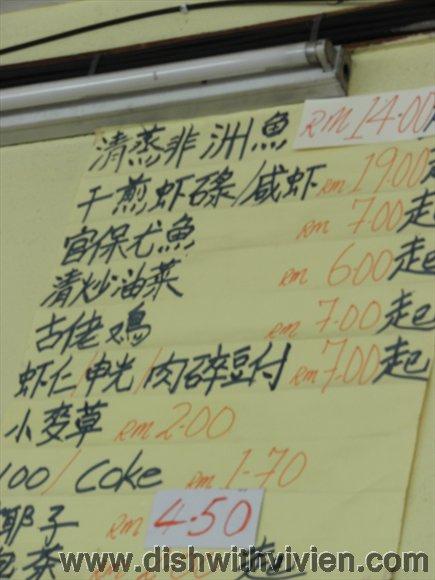 清蒸非洲魚 RM 14.00
干煎虾碌/咸虾 RM 19.00起
宫保尤魚 RM 7.00起
清炒油菜 RM 6.00起
古佬鸡 RM 7.00起
虾仁/申光/肉碎豆付 RM 7.00起
小麥草 RM 2.00
100/Coke RM 1.70
椰子 RM 4.50
茶 RM 起
www.dishwithvivien.com